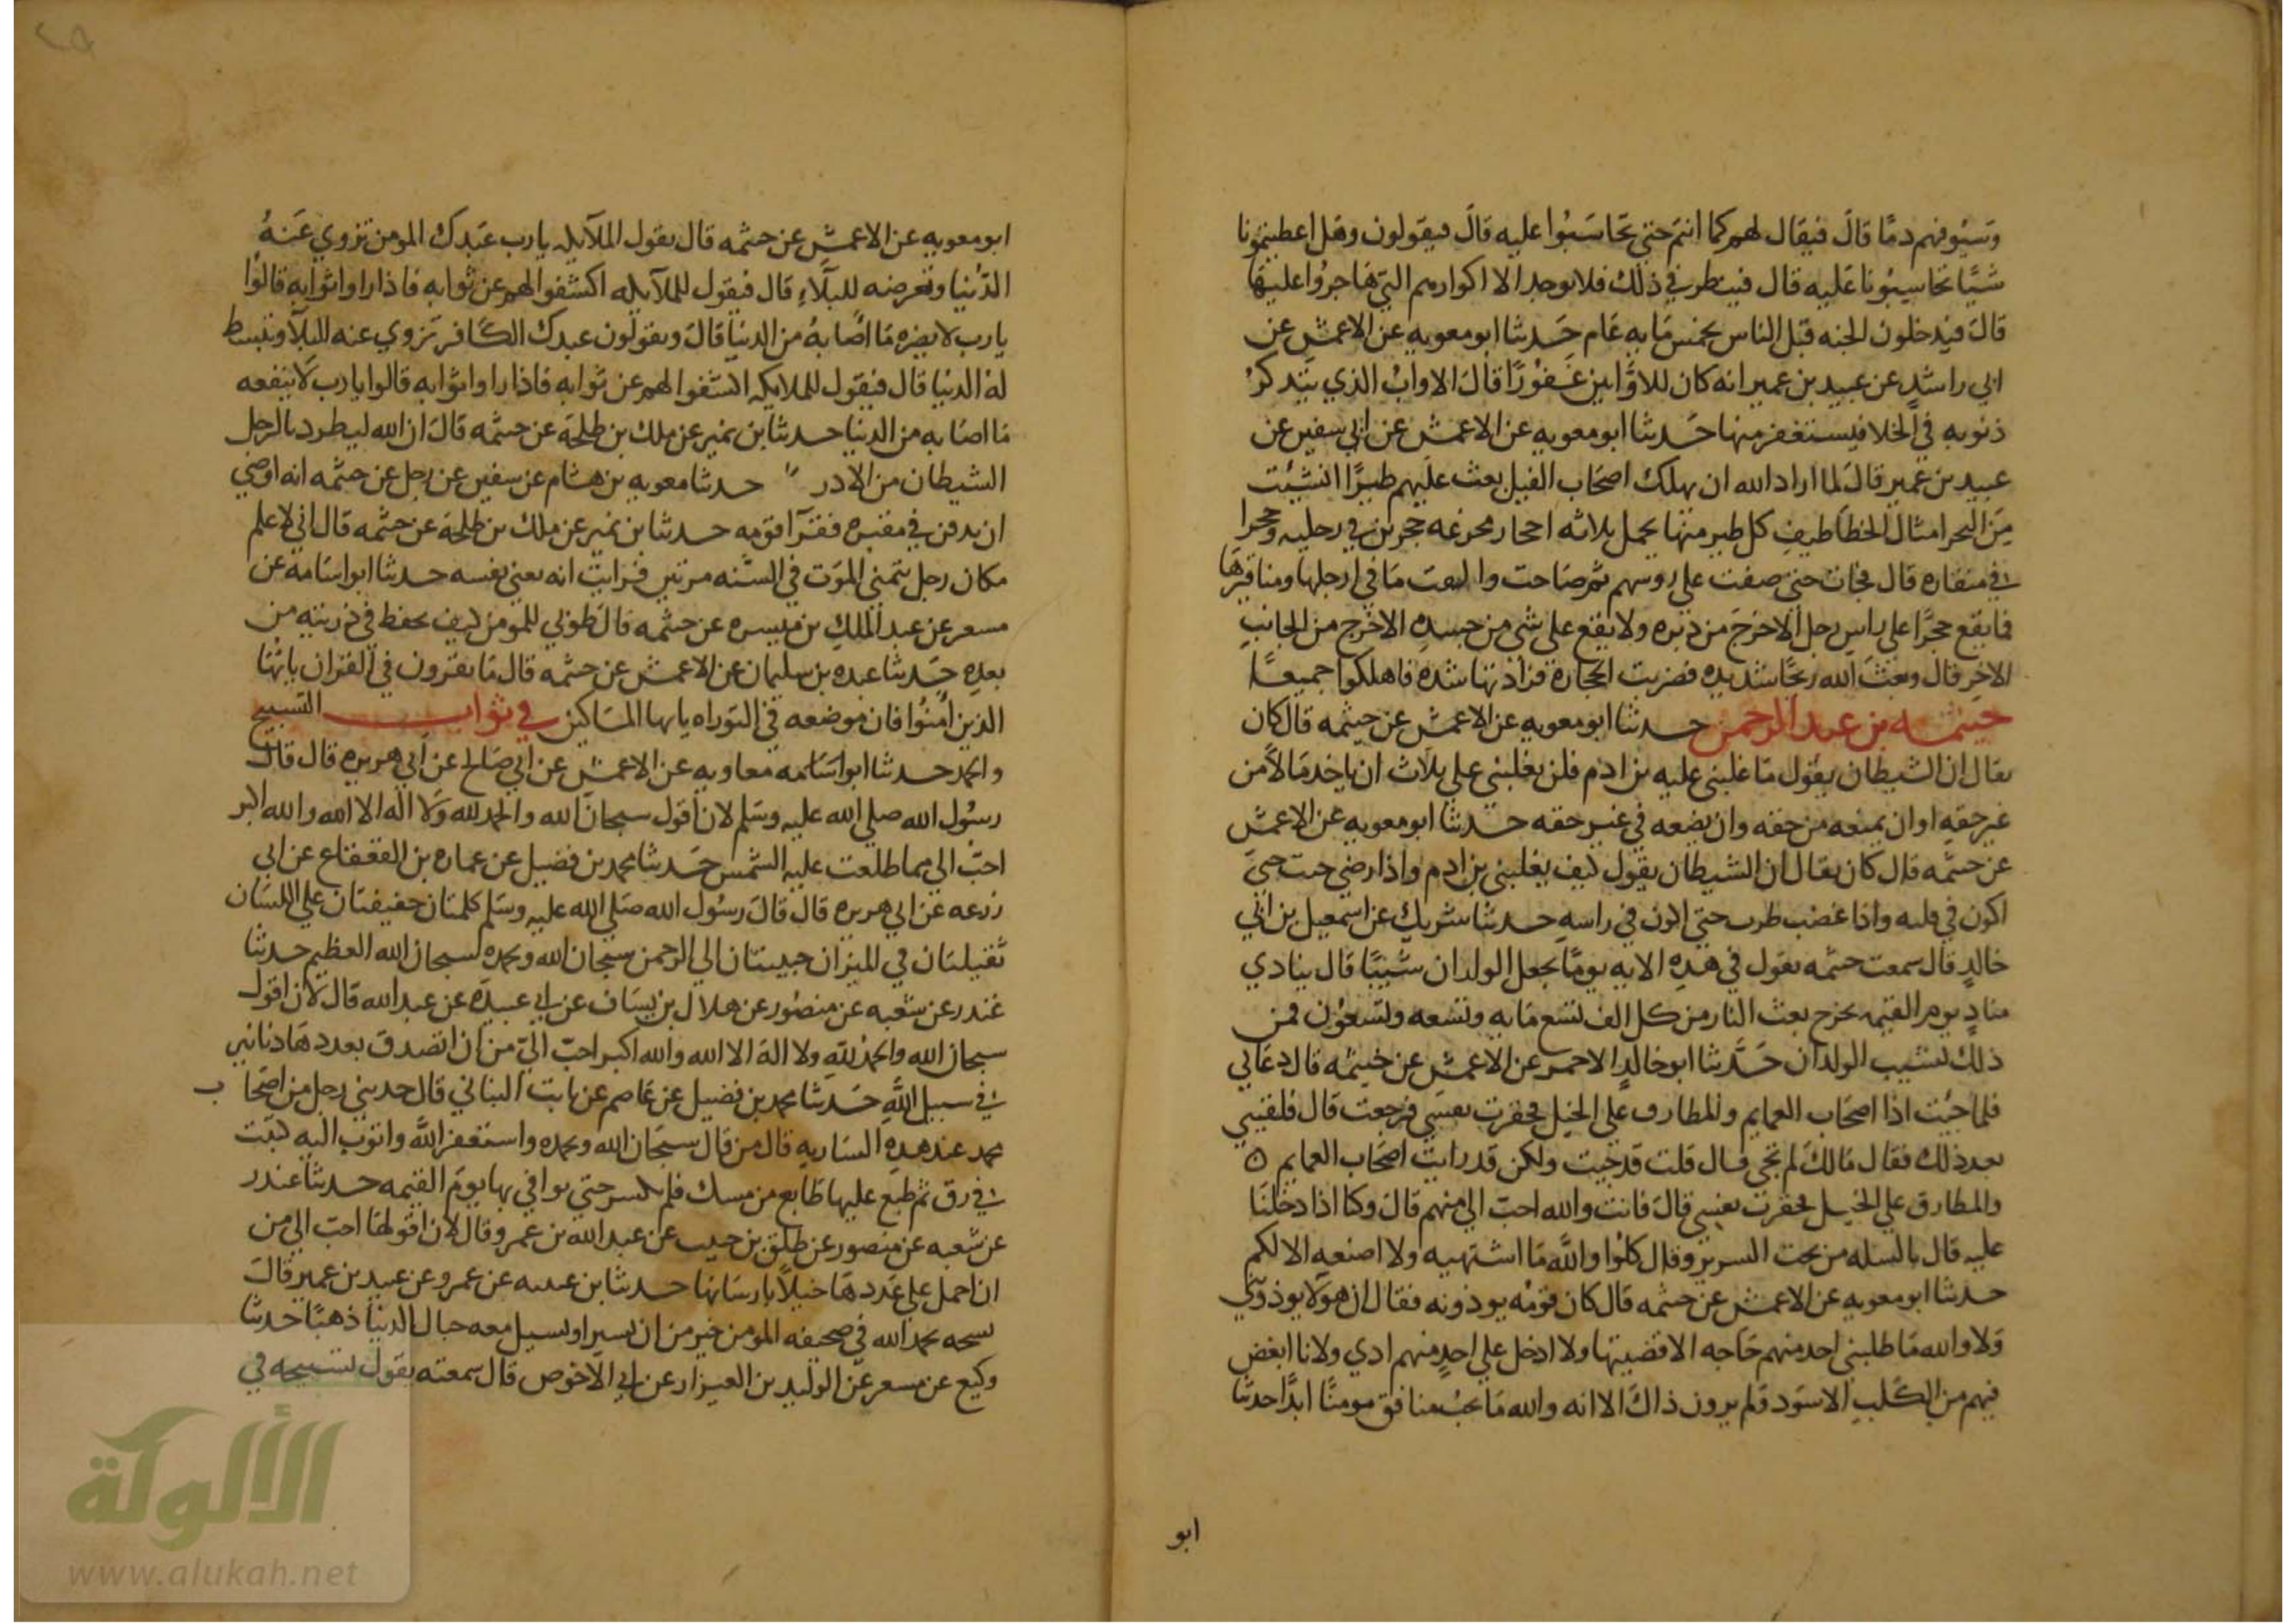 وسيوفهم دما قال فيقال لهم كما انتم حتي تحاسبوا عليه قال فيقولون وهل اعطيتمونا
شيا تحاسبونا عليه قال فينظر في ذلك فلا يوجد الا اكوارهم التي هاجروا عليها
قال فيدخلون الجنه قبل الناس بخمس مايه عام حدثنا ابو معويه عن الاعمش عن
ابي راشد عن عبيد بن عمير انه كان للاوابين غفورا قال الاواب الذي يتذكر
ذنوبه في الخلا فيستغفر منها حدثنا ابو معويه عن الاعمش عن ابي سفين عن
عبيد بن عمير قال لما اراد الله ان يهلك اصحاب الفيل بعث عليهم طيرا انشيت
من البحر امثال الخطاطيف كل طير منها يحمل ثلاثه احجار مجزعه حجرين في رجليه وحجرا
في منقاره قال فجات حتي صفت علي روسهم ثم صاحت والقت ما في ارجلها ومناقيرها
فما يقع حجرا علي راس رجل الا خرج من دبره ولا يقع علي شي من جسده الا خرج من الجانب
الاخر قال وبعث الله ريحا شديده فضربت الحجارة فزادتها شده فاهلكوا جميعا
خيثمه بن عبد الرحمن حدثنا ابو معويه عن الاعمش عن خيثمه قال كان
يقال ان الشيطان يقول ما غلبني عليه بن ادم فلن يغلبني علي ثلاث ان ياخذ مالا من
غير حقه او ان يمنعه من حقه وان يضعه في غير حقه حدثنا ابو معويه عن الاعمش
عن خيثمه قال كان يقال ان الشيطان يقول كيف يغلبني بن ادم واذا رضي جيت حتي
اكون في قلبه واذا غضب طرت حتي اكون في راسه حدثنا شريك عن اسمعيل بن ابي
خالد قال سمعت خيثمه يقول في هذه الايه يوما يجعل الولدان شيبا قال ينادي
مناد يوم القيمه يخرج بعث النار من كل الف تسع مايه وتسعه وتسعون فمن
ذلك تشيب الولدان حدثنا ابو خالد الاحمر عن الاعمش عن خيثمه قال دعاني
فلما جيت اذا اصحاب العمايم والمطارف علي الخيل فحقرت نفسي فرجعت قال فلقيني
بعد ذلك فقال مالك لم تجي قال قلت قد جيت ولكن قد رايت اصحاب العمايم ٥
والمطارق علي الخيل فحقرت نفسي قال فانت والله احب الي منهم قال وكنا اذا دخلنا
عليه قال بالسله من تحت السرير وقال كلوا والله ما اشتهيه ولا اصنعه الا لكم
حدثنا ابو معويه عن الاعمش عن خيثمه قال كان قومه يوذونه فقال ان هولا يوذوني
ولا والله ما طلبني احد منهم حاجه الا قضيتها ولا ادخل علي احد منهم اذي ولانا ابغض
فيهم من الكلب الاسود ولم يرون ذاك الا انه والله ما يحب منافق مومنا ابدا حدثنا
ابو
ابو معويه عن الاعمش عن خيثمه قال تقول الملايكه يا رب عبدك المومن تزوي عنه
الدنيا وتعرضه للبلاء قال فيقول للملايكه اكشفوا لهم عن ثوابه فاذا راوا ثوابه قالوا
يا رب لا يضره ما اصابه من الدنيا قال ويقولون عبدك الكافر تزوي عنه البلا وتبسط
له الدنيا قال فيقول للملايكه اكشفوا لهم عن ثوابه فاذا راوا ثوابه قالوا يا رب لا ينفعه
ما اصابه من الدنيا حدثنا بن نمير عن ملك بن طلحة عن خيثمه قال ان الله ليطرد بالرجل
الشيطان من الادر حدثنا معويه بن هشام عن سفين عن رجل عن خيثمه انه اوصي
ان يدفن في مقبره فقرآ قومه حدثنا بن نمير عن ملك بن طلحة عن خيثمه قال اني لاعلم
مكان رجل يتمني الموت في السنه مرتين فرايت انه يعني نفسه حدثنا ابو اسامه عن
مسعر عن عبد الملك بن ميسره عن خيثمه قال طوبي للمومن كيف يحفظ في ذريته من
بعده حدثنا عبده بن سليمان عن الاعمش عن خيثمه قال ما يقرون في القران يا ايها
الذين امنوا فان موضعه في التوراه يا ايها المساكين في ثواب التسبيح
والحمد حدثنا ابو اسامه معاويه عن الاعمش عن ابي صالح عن ابي هريره قال قال
رسول الله صلي الله عليه وسلم لان اقول سبحان الله والحمد لله ولا اله الا الله والله اكبر
احب الي مما طلعت عليه الشمس حدثنا محمد بن فضيل عن عماره بن القعقاع عن ابي
زرعه عن ابي هريره قال قال رسول الله صلي الله عليه وسلم كلمتان خفيفتان علي اللسان
ثقيلتان في الميزان حبيبتان الي الرحمن سبحان الله وبحمده سبحان الله العظيم حدثنا
غندر عن شعبه عن منصور عن هلال بن يساف عن ابي عبيدة عن عبد الله قال لان اقول
سبحان الله والحمد لله ولا اله الا الله والله اكبر احب الي من ان اتصدق بعددها دنانير
في سبيل الله حدثنا محمد بن فضيل عن عاصم عن ثابت البناني قال حدثني رجل من اصحاب
محمد عند هذه الساريه قال من قال سبحان الله وبحمده واستغفر الله واتوب اليه كتبت
في رق ثم طبع عليها طابع من مسك فلم يكسر حتي يوافي بها يوم القيمه حدثنا غندر
عن شعبه عن منصور عن طلق بن حبيب عن عبد الله بن عمرو قال لان اقولها احب الي من
ان احمل علي عددها خيلا بارسانها حدثنا بن عيينه عن عمرو عن عبيد بن عمير قال
تسبيحه بحمد الله في صحيفه المومن خير من ان تسير او تسيل معه جبال الدنيا ذهبا حدثنا
وكيع عن مسعر عن الوليد بن العيزار عن ابي الاحوص قال سمعته يقول تسبيحه في
الألوكة
www.alukah.net